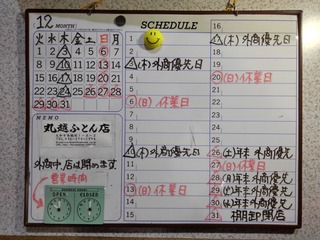 12 MONTH
火 水 木 金 土 日 月
1 2 3 4 5 6 7
8 9 10 11 12 13 14
15 16 17 18 19 20 21
22 23 24 25 26 27 28
29 30 31
MEMO
丸越ふとん店
外商中店は閉めます
営業時間
OPEN CLOSED
SCHEDULE
1
2
3 (木) 外商優先日
4
5
6 (日) 休業日
7
8
9
10 (木) 外商優先日
11
12
13 (日) 休業日
14
15
16
17 (木) 外商優先日
18
19
20 (日) 休業日
21
22
23
24
25
26 (土) 年末 外商優先
27 (日) 休業日
28 (月) 年末 外商優先
29 (火) 年末 外商優先
30 (水) 年末 外商優先
31 棚卸閉店